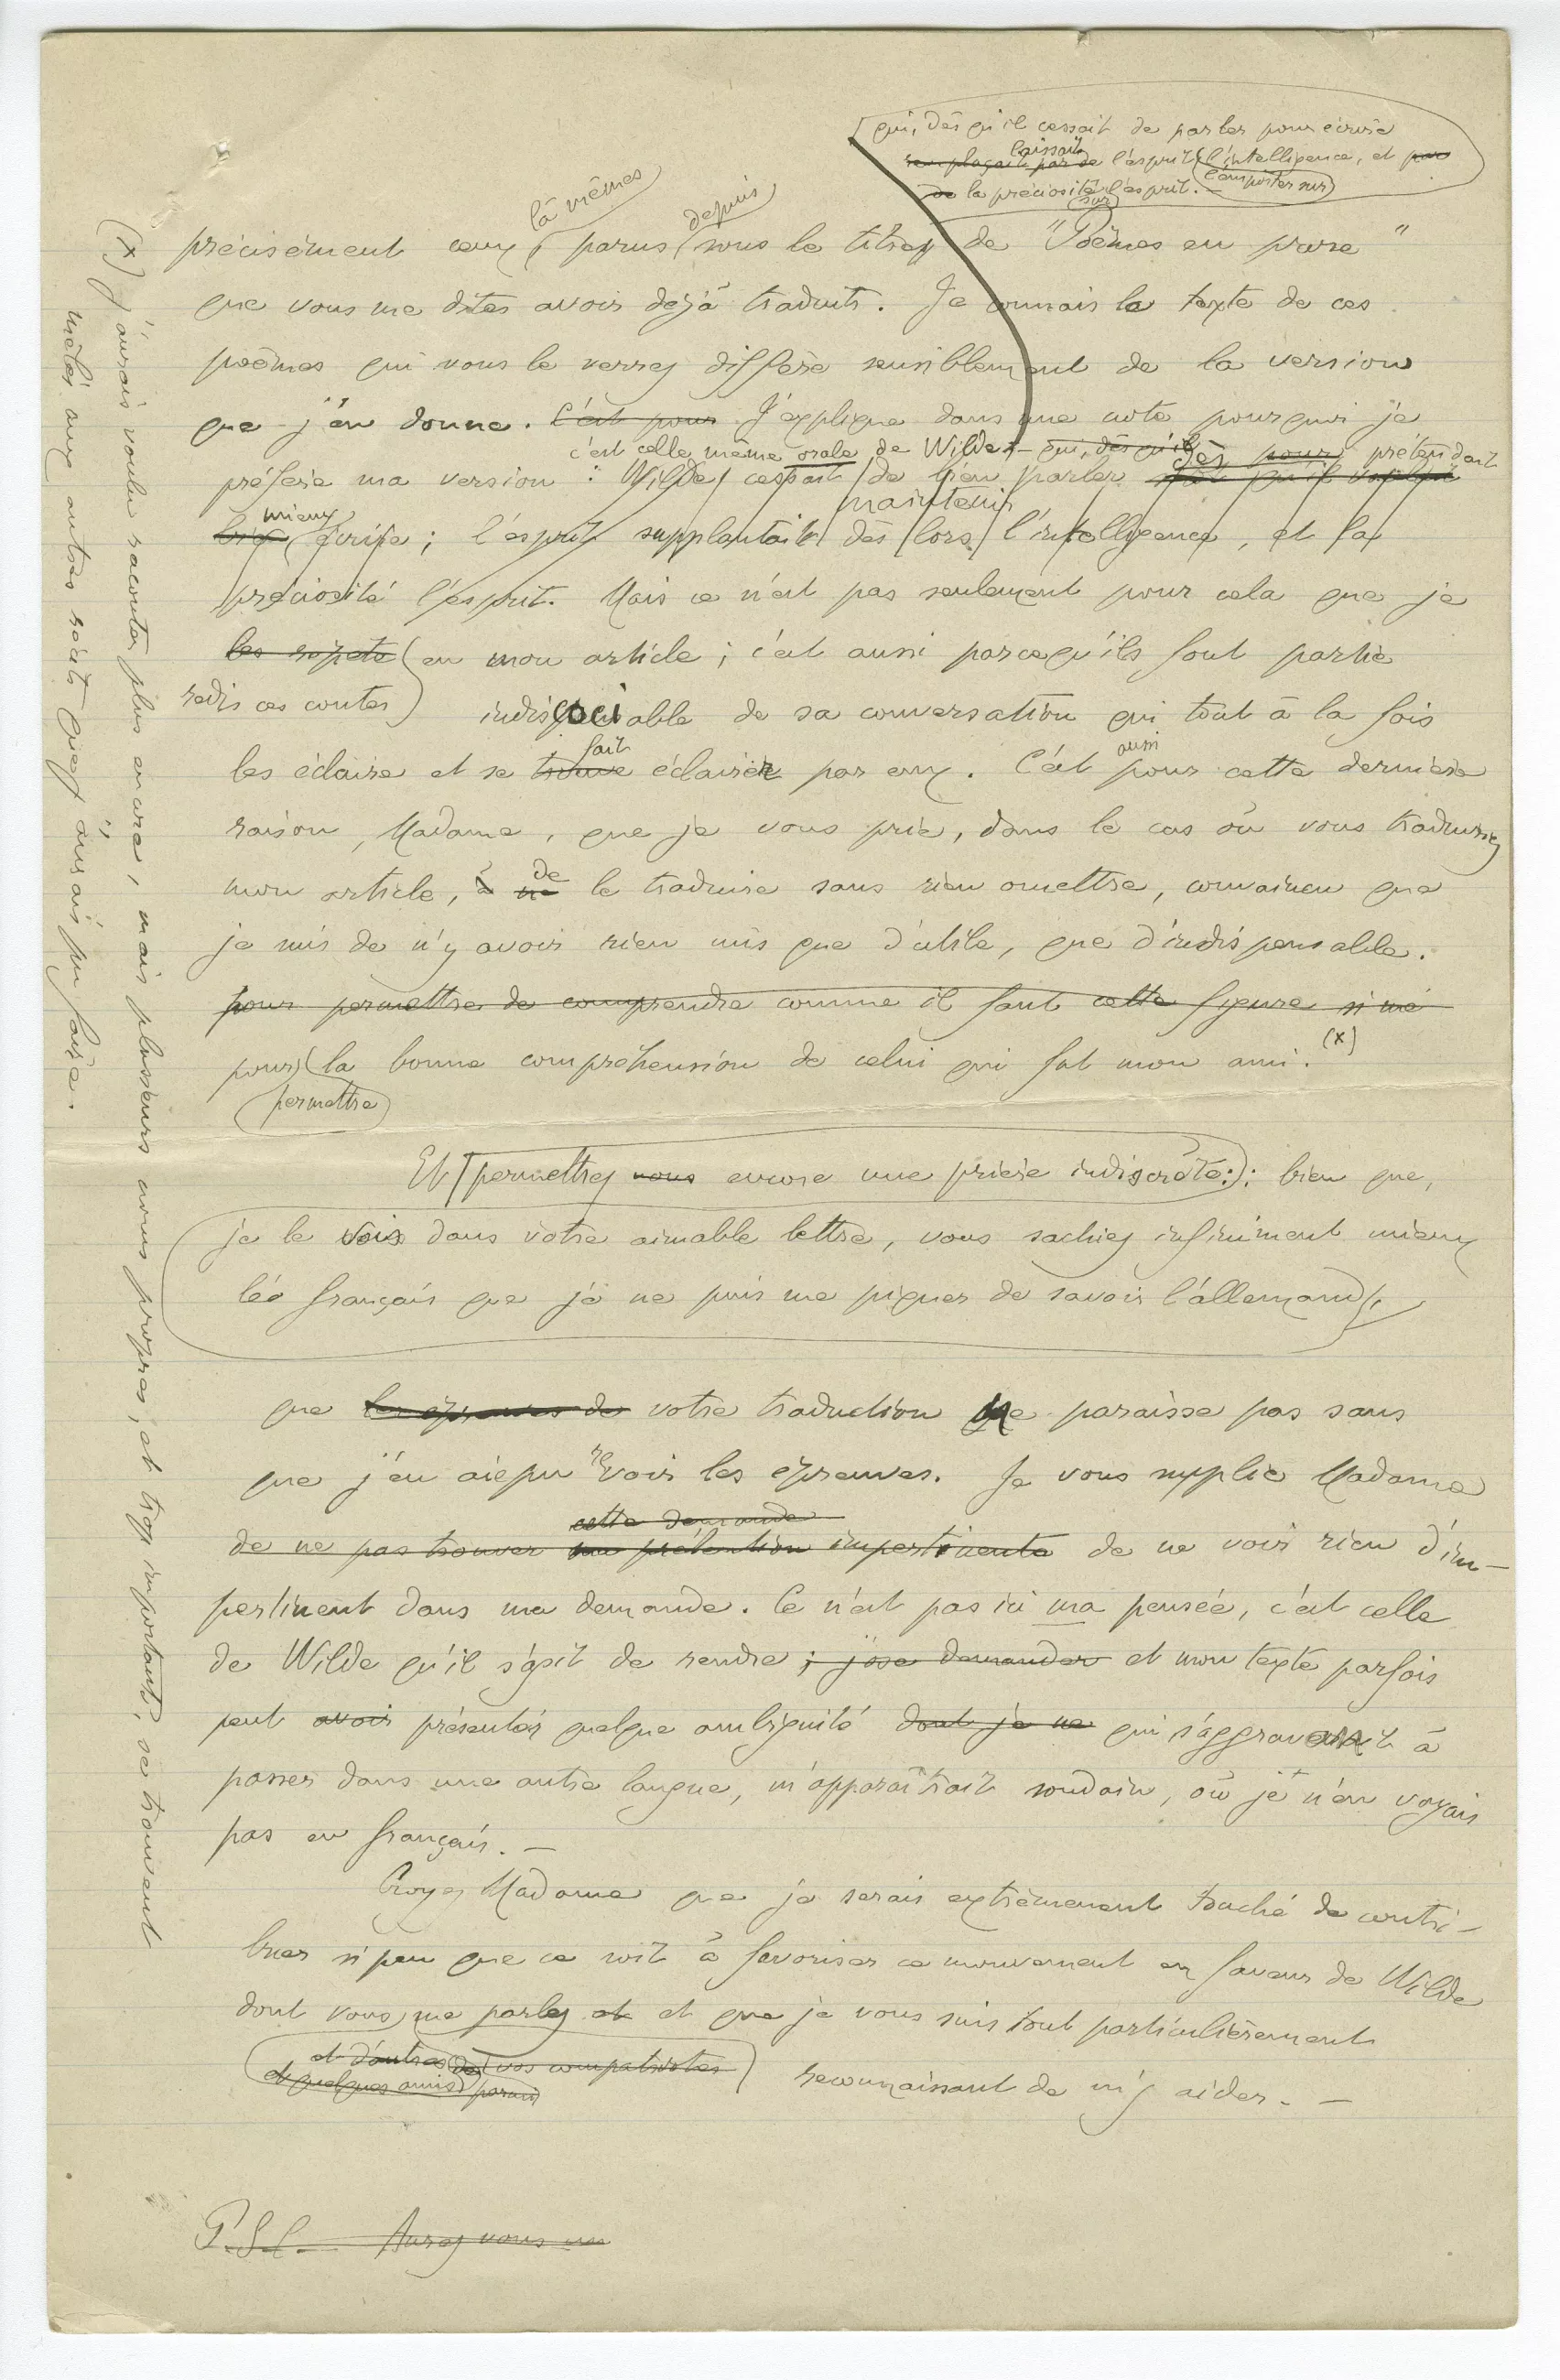 qui, dès qu'il cessait de parler pour écrire
laissait
remplaçait par de l'esprit l'intelligence, et par
l'emporter sur
de la préciosité l'esprit. —
sur
là mêmes
depuis
précisément ceux, parus sous le titre de "Poèmes en prose"
que vous me dites avoir déjà traduits. Je connais le texte de ces
poèmes qui vous le verrez diffère sensiblement de la version
que j'en donne. C'est pour J'explique dans une note pourquoi je
c'est celle même orale de Wilde — qui, dès qu'il
dès pour prétendait
préfère ma version : Wilde cessait de bien parler
maintenir
mieux
bien écrire ; l'esprit supplantait dès lors l'intelligence, et la
préciosité l'esprit. Mais ce n'est pas seulement pour cela que je
les répète en mon article ; c'est aussi parcequ'ils font partie
redis ces contes
indissociable de sa conversation qui tout à la fois
fait
aussi
les éclaire et se trouve éclairer par eux. C'est pour cette dernière
raison, Madame, que je vous prie, dans le cas où vous traduiriez
de
mon article, à ne le traduire sans rien omettre, convaincu que
je suis de n'y avoir rien mis que d'utile, que d'indispensable.
pour permettre de comprendre comme il faut cette figure si mé
pour la bonne compréhension de celui qui fut mon ami. (x)
permettre
Et permettez nous encore une prière indiscrète : bien que,
je le vois dans votre aimable lettre, vous sachiez infiniment mieux
le français que je ne puis me piquer de savoir l'allemand,
que les épreuves de votre traduction ne paraisse pas sans
que j'en aie pu revoir les épreuves. Je vous supplie Madame
cette demande
de ne pas trouver ma prétention impertinente de ne voir rien d'im-
pertinent dans ma demande. Ce n'est pas ici ma pensée, c'est celle
de Wilde qu'il s'agit de rendre ; j'ose demander et mon texte parfois
peut avoir présenter quelque ambiguité dont je ne qui s'aggraverait à
passer dans une autre langue, m'apparaîtrait soudain, où je n'en voyais
pas en français. —
Croyez Madame que je serais extrêmement touché de contri-
buer si peu que ce soit à favoriser ce mouvement en faveur de Wilde
dont vous me parlez et et que je vous suis tout particulièrement
et d'autres de vos compatriotes
et quelques amis
reconnaissant de m'y aider. —
P.S. — Aurez vous
(x) J'aurais voulu raconter plus encore, mais plusieurs noms propres, et trop importants, se trouvent
mêlés aux autres récits que j'aurais pu faire.